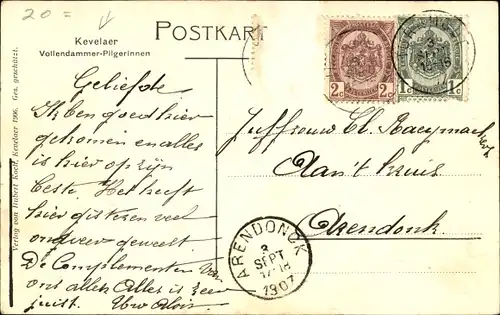 20 =
POSTKART
Kevelaer
Vollendammer-Pilgerinnen
Verlag von Hubert Koch, Kevelaer 1906. Ges. geschützt.
Geliefste
Ik ben goed hier
gekomen en alles
is hier op zijn
beste. Het heeft
hier gisteren veel
onweer geweest.
De Complementen van
ons allen Alles is zeer
juist. Uw Alois.
2c 2c
1c 1c
Juffrouw Cl. Raeymaekers
Aan't kruis
Arendonk
ARENDONCK
3
SEPT
1907